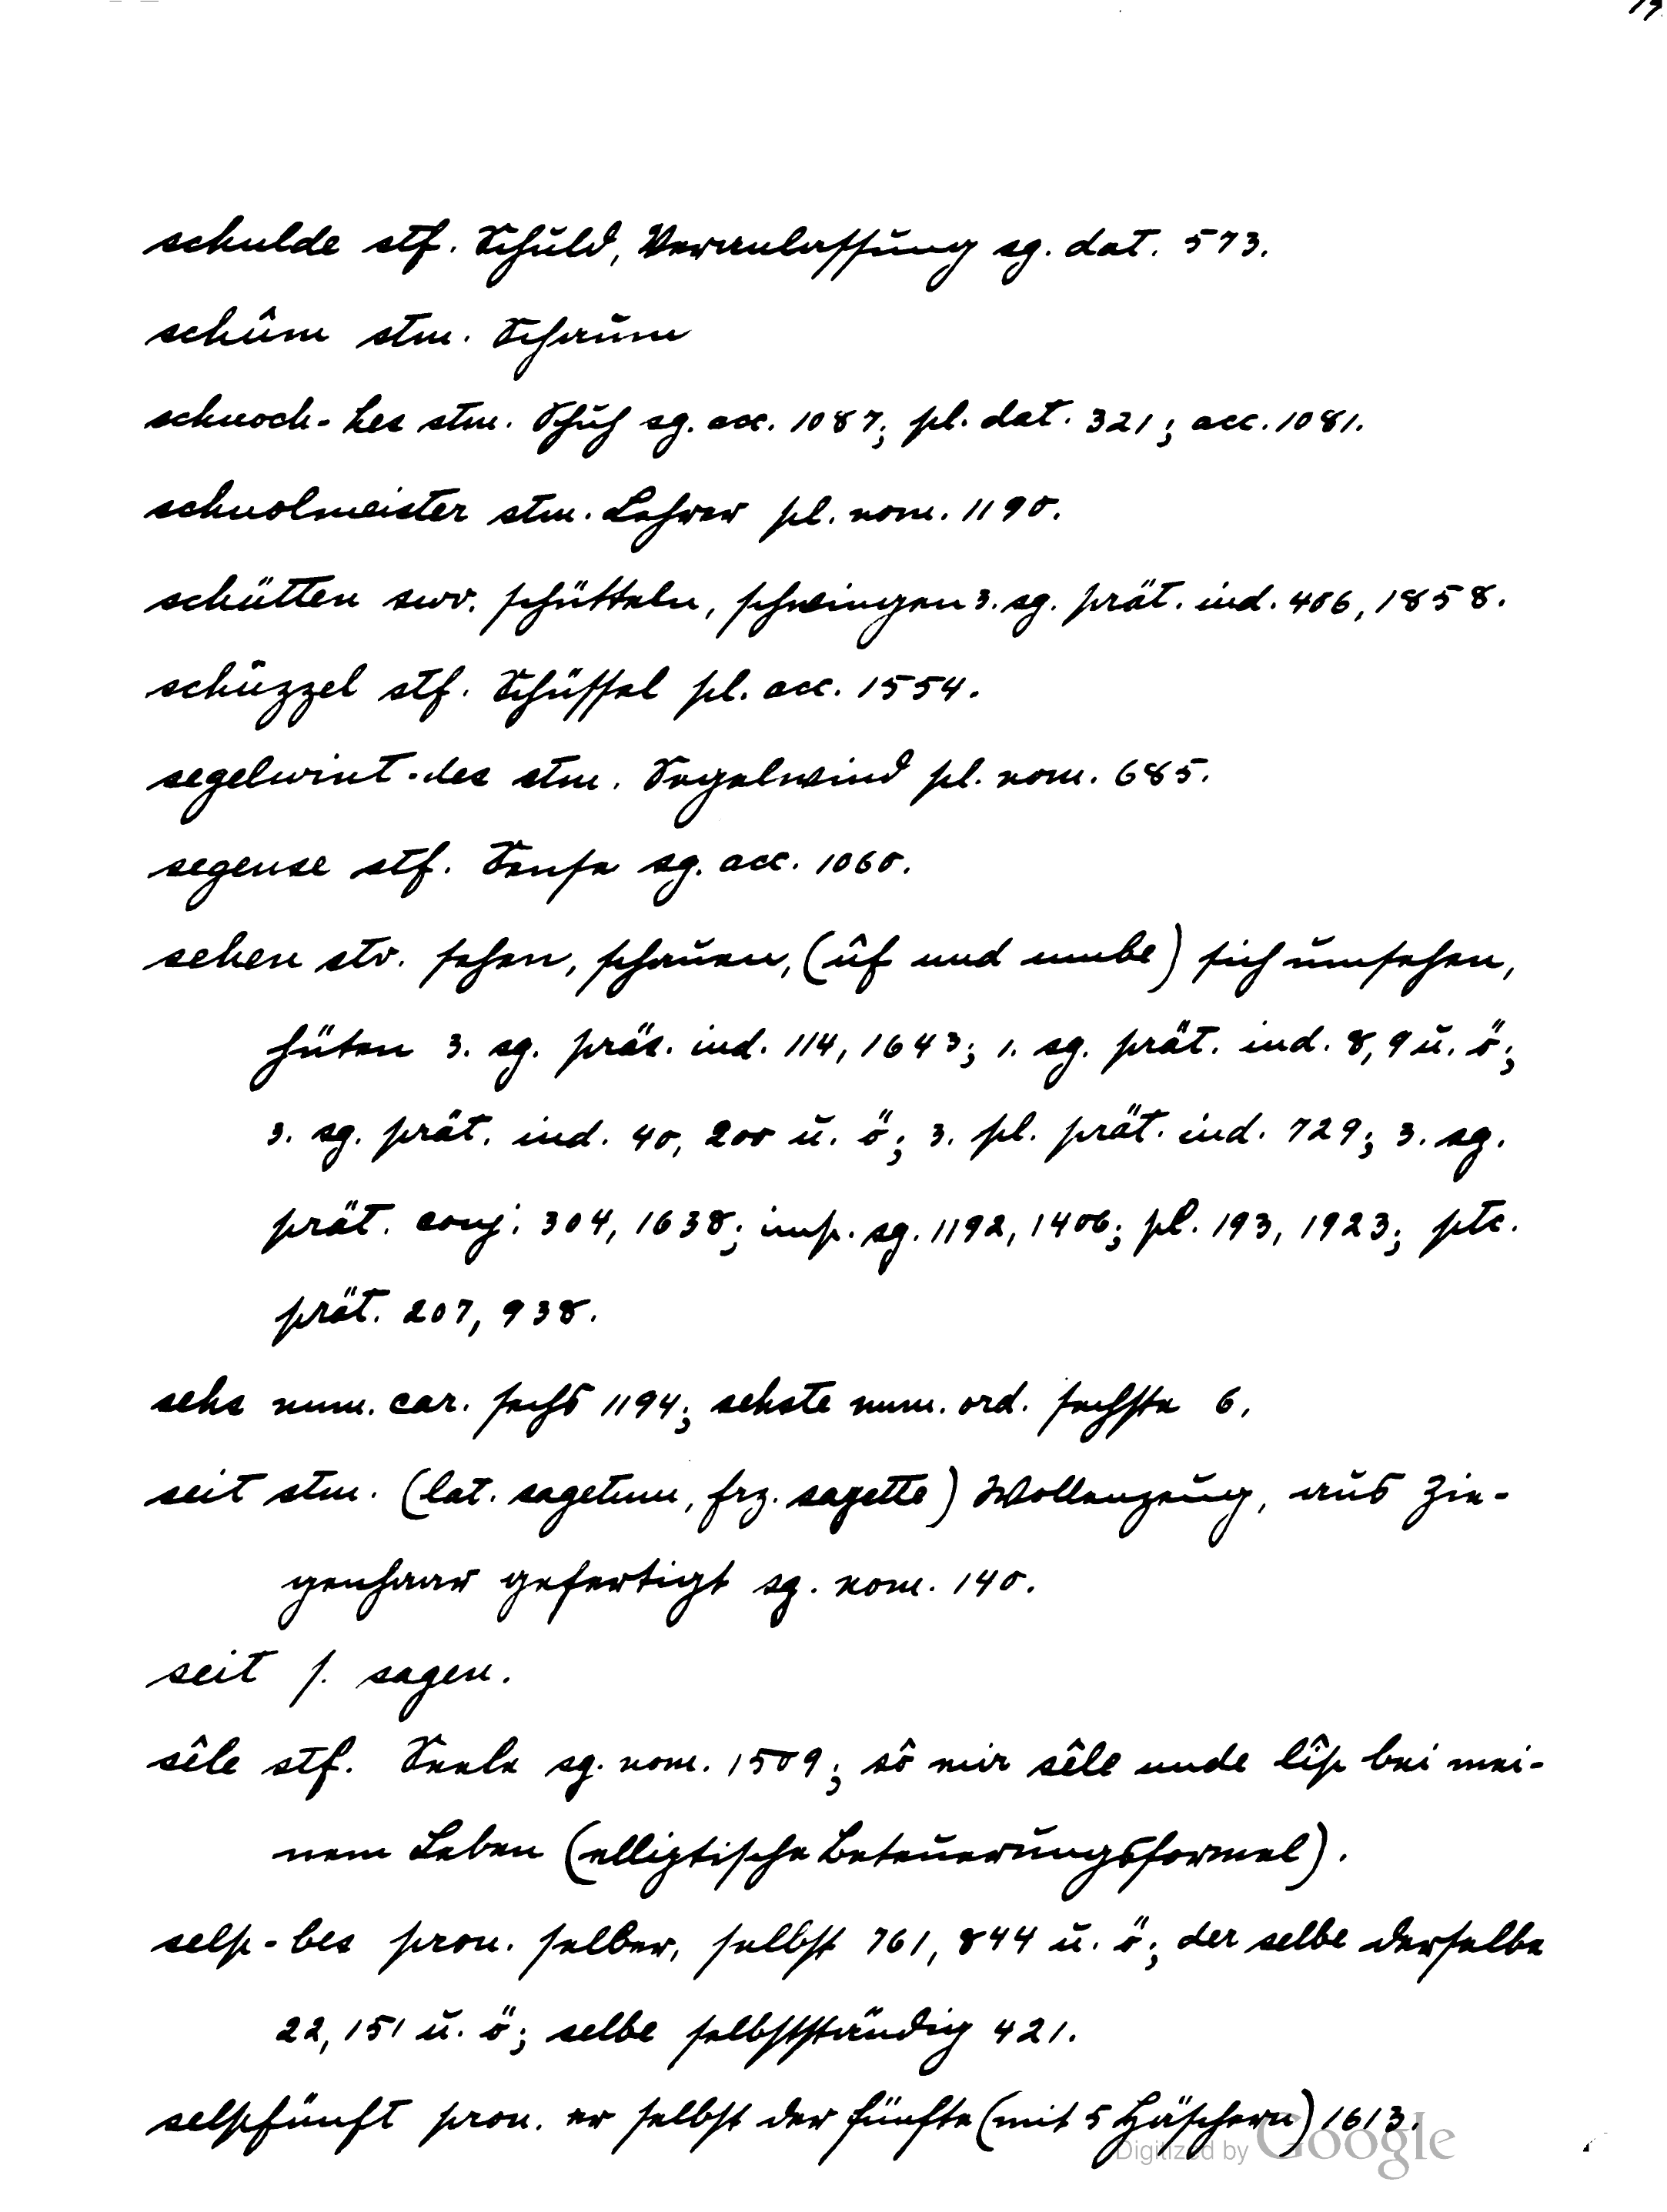 schulde stf. Schuld, Veranlassung sg. dat. 573.
schûm stm. Schaum
schuoch-hes stm. Schuh sg. acc. 1087; pl. dat. 321; acc. 1081.
schuolmeister stm. Lehrer pl. nom. 1190.
schütten swv. schütteln, schwingen 3. sg. prät. ind. 406, 1858.
schüzzel stf. Schüssel pl. acc. 1554.
segelwint-des stm. Segelwind pl. nom. 685.
segense stf. Sense sg. acc. 1060.
sehen stv. sehen, schauen, (ûf und umbe) sich umsehen,
hüten 3. sg. präs. ind. 114, 1643; 1. sg. prät. ind. 8, 9 u. ö;
3. sg. prät. ind. 40, 200 u. ö; 3. pl. prät. ind. 729; 3. sg.
prät. conj. 304, 1638; imp. sg. 1192, 1406; pl. 193, 1923; ptc.
prät. 207, 938.
sehs num. car. sechs 1194; sehste num. ord. sechste 6.
seit stm. (lat. sagetum, frz. sagette) Wollenzeug, aus Zie-
genhaar gefertigt sg. nom. 140.
seit s. sagen.
sêle stf. Seele sg. nom. 1509; sô mir sêle unde lîp bei mei-
nem Leben (elliptische Beteuerungsformel).
selp-bes pron. selber, selbst 761, 844 u. ö; der selbe derselbe
22, 151 u. ö; selbe selbstständig 421.
selpfünft pron. er selbst der fünfte (mit 5 Häschern) 1613.
Digitized by Google